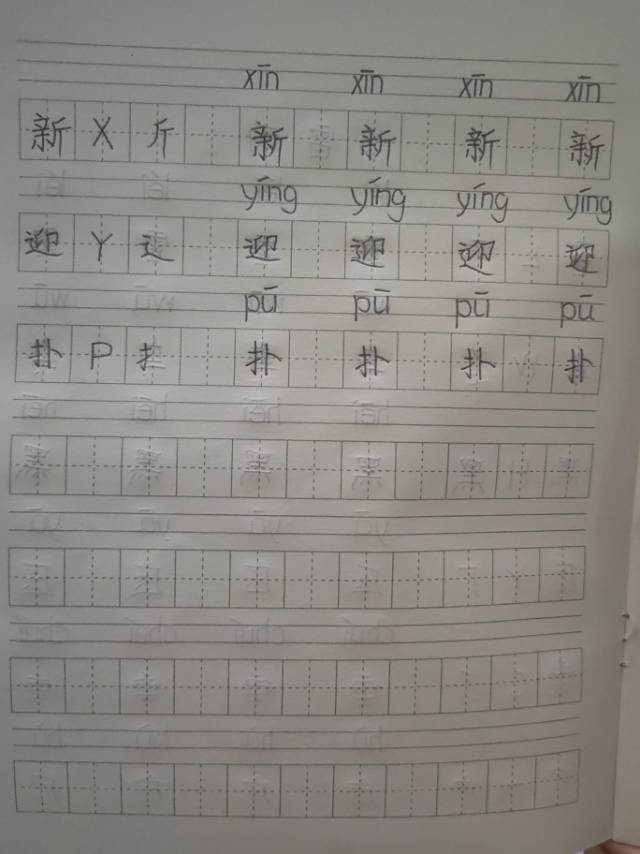 xīn xīn xīn xīn
新 X 斤 新 新 新 新
yíng yíng yíng yíng
迎 Y 辶 迎 迎 迎 迎
pū pū pū pū
扑 P 扌 扑 扑 扑 扑